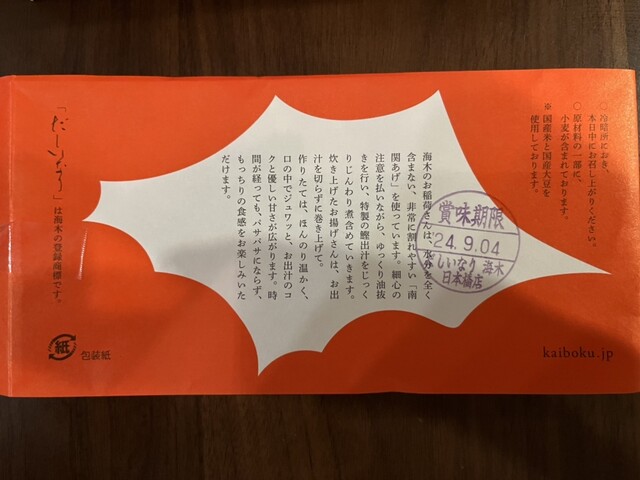 ○ 冷暗所におき、
本日中にお召し上がりください。
○ 原材料の一部に、
小麦が含まれております。
※ 国産米と国産大豆を
使用しております。
賞味期限
'24.9.04
だしいなり 海木
日本橋店
海木のお稲荷さんは、水分を全く
含まない、非常に割れやすい「南
関あげ」を使っています。細心の
注意を払いながら、ゆっくり油抜
きを行い、特製の鰹出汁をじっく
りじんわり煮含めていきます。
炊き上げたお揚げさんは、お出
汁を切らずに巻き上げて。
作りたては、ほんのり温かく、
口の中でジュワッと、お出汁のコ
クと優しい甘さが広がります。時
間が経っても、パサパサにならず、
もっちりの食感をお楽しみいた
だけます。
「だしいなり」は海木の登録商標です。
紙
包装紙
kaiboku.jp